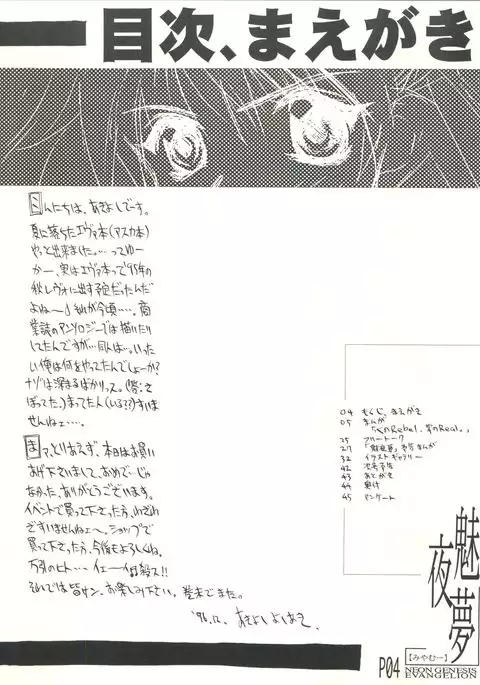 目次、まえがき
こんにちは、あきよしでーす。
夏に落ちたエヴァ本(アスカ本)
やっと出来ました。…ってゆー
かー、実はエヴァ本って'95年の
秋レヴォに出す予定だったんだ
よね〜♩それが今頃…。商
業誌のアンソロジーでは描いたり
してたんですが…同人は…。いった
い俺は何をやってたんでしょーか?
ナゾは深まるばかりっス。(答:さ
ぼってた。)まってた人(いる??)すいま
せんねェ…。
まァ、とりあえず、本日はお買い
あげ下さいまして、おめで…じゃ
なかった、ありがとうございます。
イベントで買って下さった方、わざわ
ざすいませんねェ〜。ショップで
買って下さった方、今後もよろしくね。
万引のヒト…イエーイ殺ス!!
それでは皆サン、お楽しみ下さい。巻末でまた。
'96.12. あきよしよしあき
04 もくじ、まえがき
05 まんが
25 フリートーク
27 「魅夜夢」予告まんが
32 イラストギャラリー
42 次号予告
43 あとがき
44 奥付
45 アンケート
魅夜夢
【みやむー】
NEON GENESIS
EVANGELION
P04